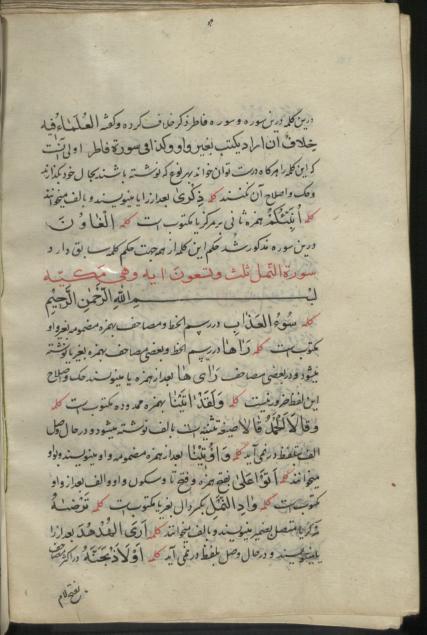 درین کلمه درین سوره و سوره فاطر ذکر خلاف کرده وکفته العُلَمَاءُ فِيه
خلاف ان اراد یکتب بغیر واو وکذا فی سورة فاطر اولی آنست
که این کلمه را هرکاه درست توان خواند بهر نوع که نوشته باشند بحال خود بگذارند
وحک واصلاح آن نکنند کلمه ذِكْرَى بعد از را یا بنویسند و بالف میخوانند
کلمه أُنَبِّئُكُمْ همزه ثانی بر مرکز یا مکتوب است کلمه الْغَاوُنَ
درین سوره مذکور شد حکم این کلمه از همه جهت حکم کلمه سابق دارد
سورة النمل ثلث وتسعون اية وهی مکیّه
بسم الله الرَّحْمنِ الرَّحِيمِ
کلمه سُوءُ الْعَذَابِ در رسم الخط و مصاحف بهمزه مضمومه بغیر واو
مکتوب است کلمه رَاهَا در رسم الخط وبعضی مصاحف بهمزه بغیر یا نوشته
میشود و در بعضی مصاحف رَاىهَا بعد از همزه یا مینویسند حک واصلاح
این لفظ ضرور نیست کلمه وَلَقَدْ اتَيْنَا بهمزه ممدوده مکتوب است کلمه
وَقَالَا الْحَمْدُ قَالَا صیغه تثنیه است بالف نوشته میشود و در حال وصل
الف بتلفظ در نمی آید کلمه وَأُوتِينَا بعد از همزه مضمومه واو مینویسند و بواو
میخوانند کلمه أَتَوْا عَلَى بفتح همزه و فتح تا وسکون واو والف بعد از واو
مکتوب است کلمه وَادِ النَّمْلِ بکسر دال بغیر یا مکتوب است کلمه تَرْضٰهُ
مذکر یا متصل بضمیر مینویسند و بالف میخوانند کلمه أَرَى الْهُدْهُدَ بعد از را
یا مینویسند و در حال وصل بلفظ در نمی آید کلمه أَوْلَاَذْبَحَنَّهُ در اکثر مصاحف
بفتح لام